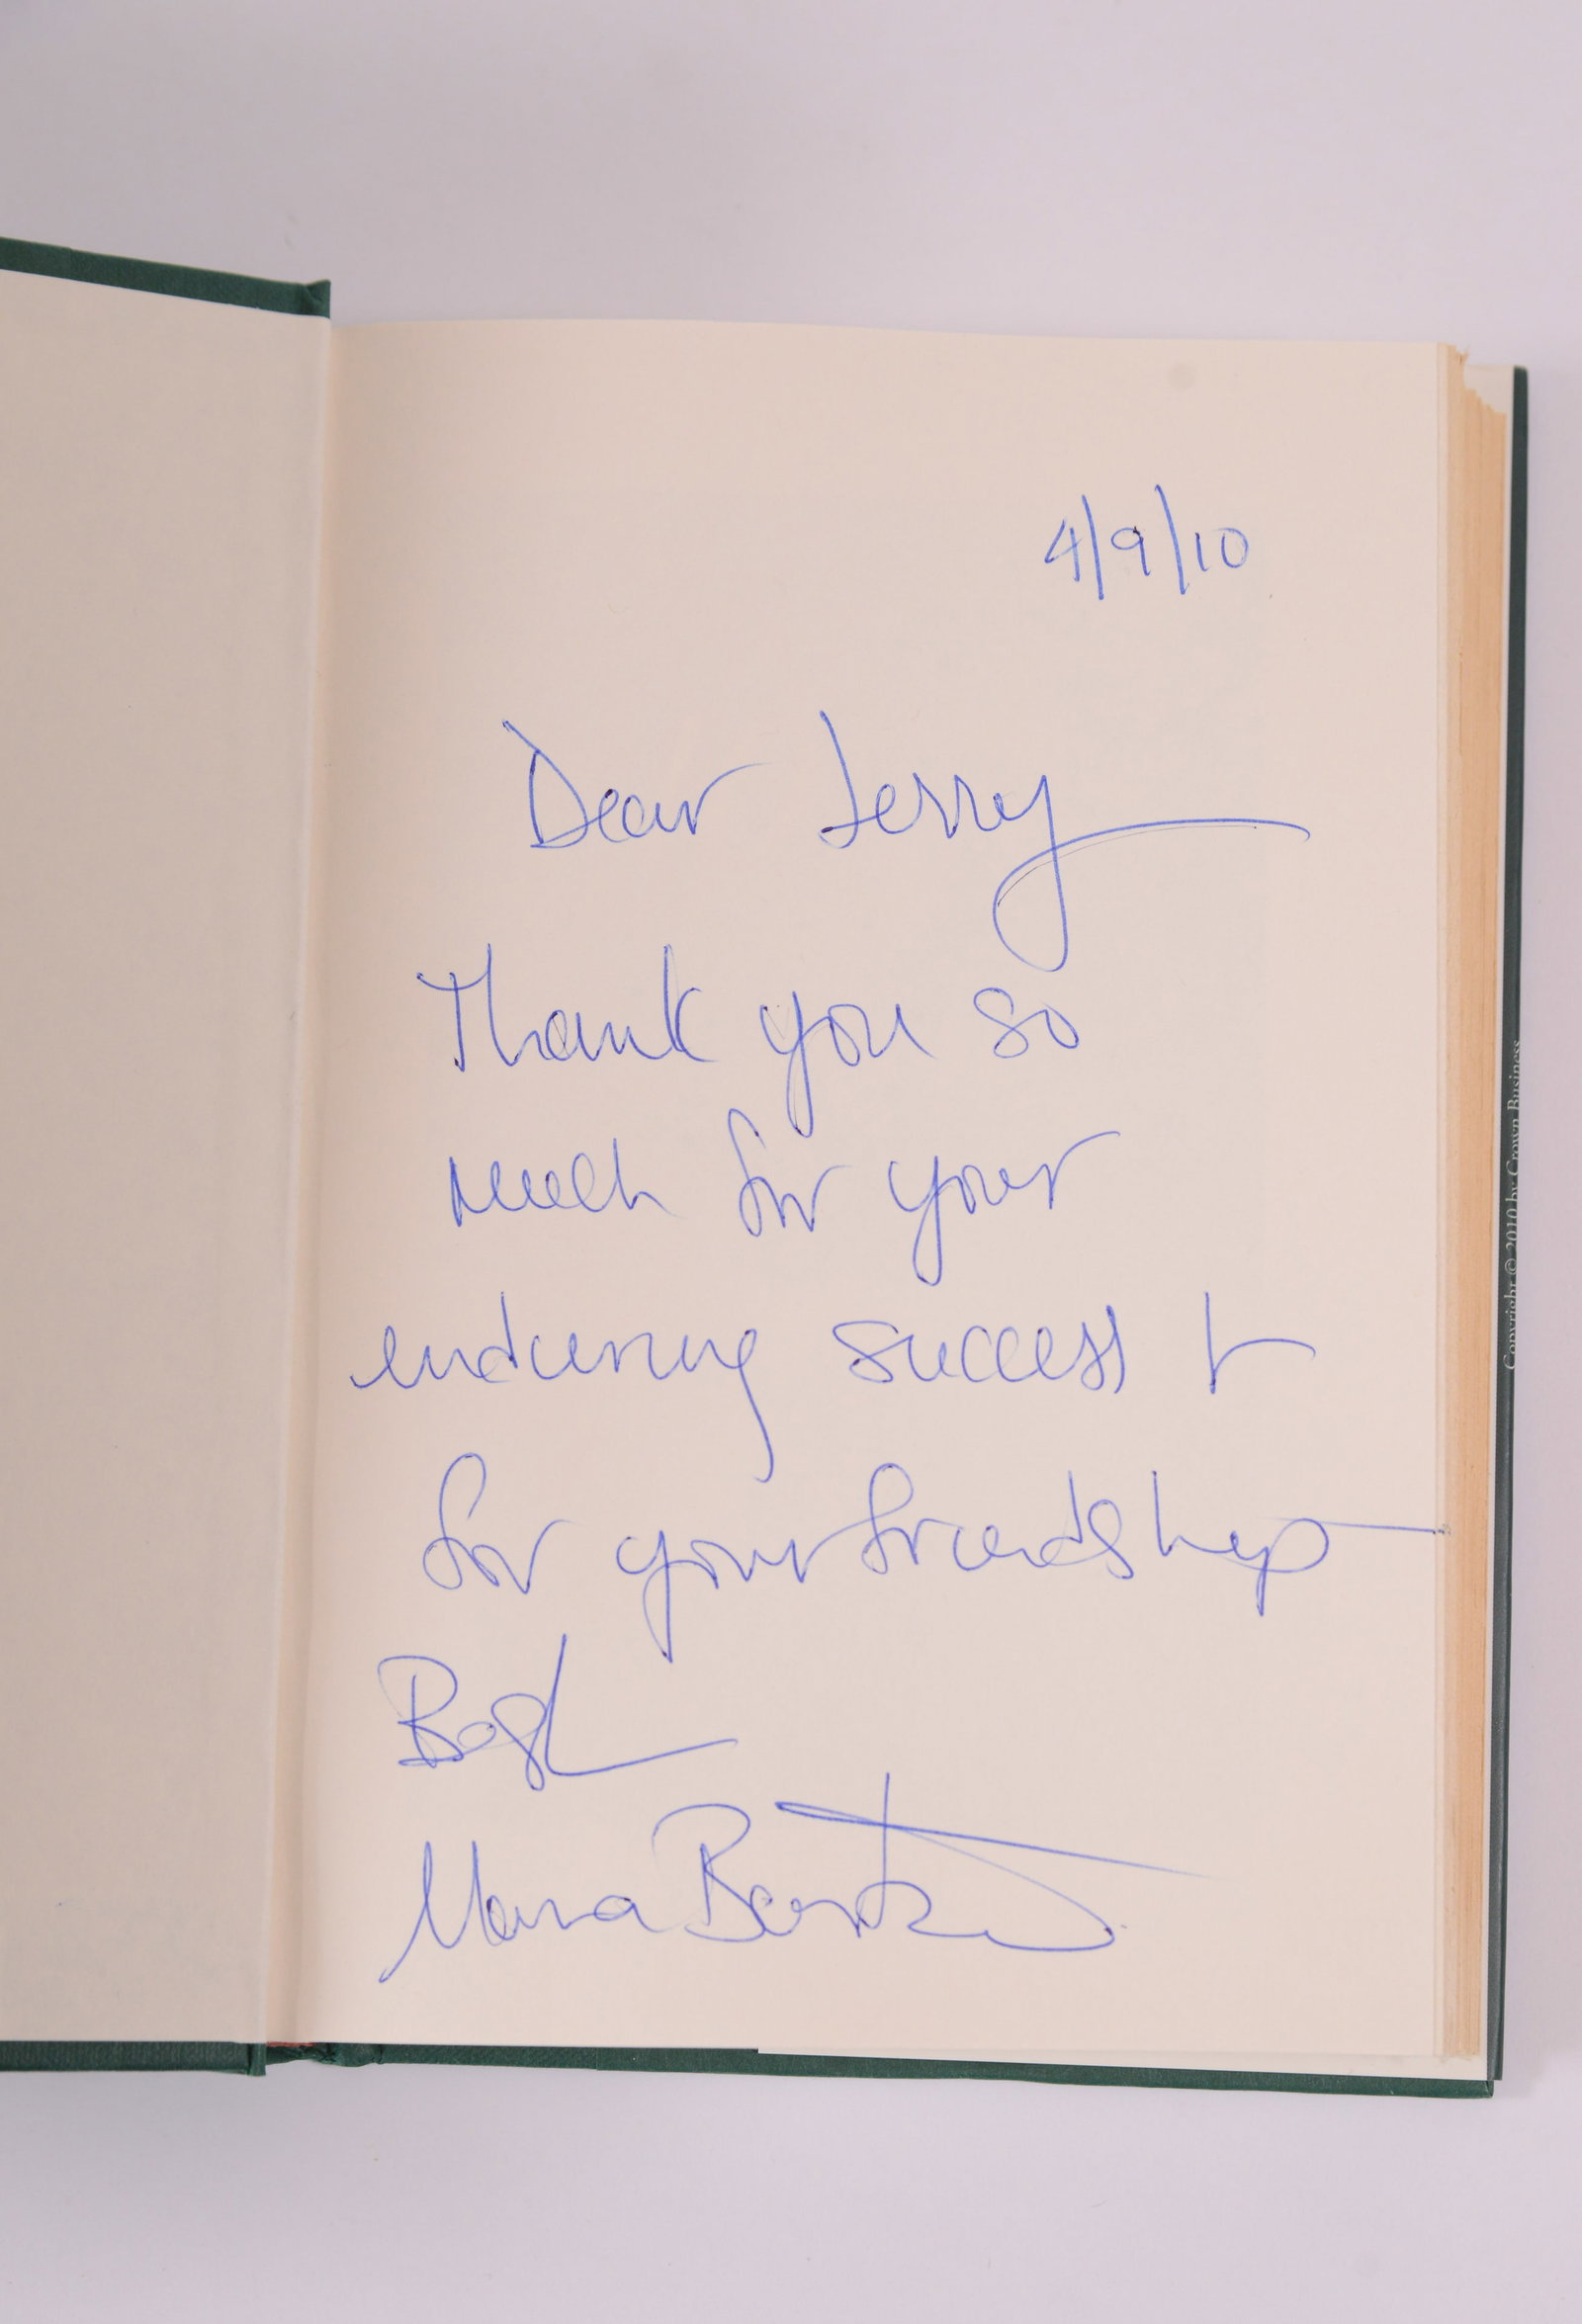 4/9/10
Dear Jerry
Thank you so
much for your
enduring success +
for your friendship
Best
Maria Bartiromo
Copyright © 2010 by Crown Business